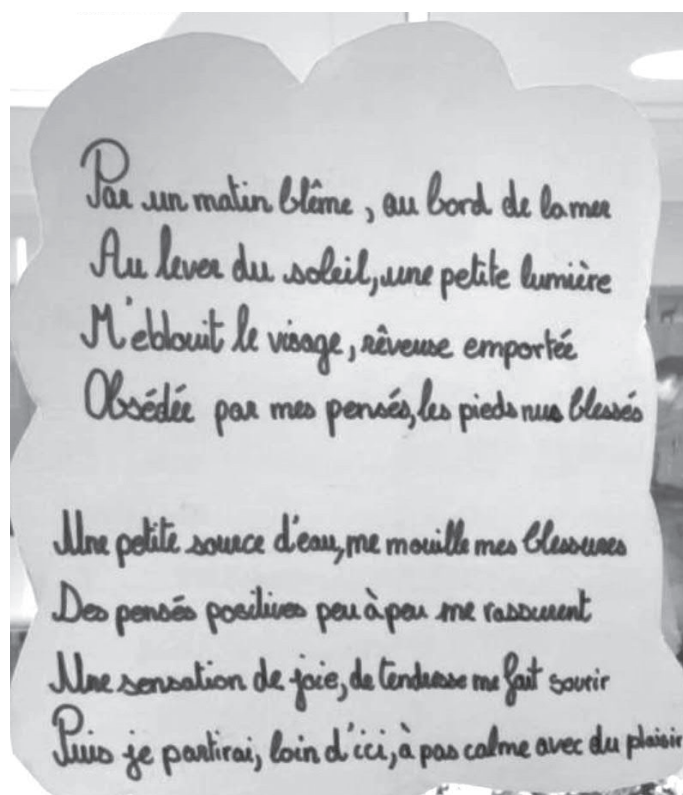 Par un matin blême, au bord de la mer
Au lever du soleil, une petite lumière
M'eblouit le visage, rêveuse emportée
Obsédée par mes pensés, les pieds nus blessés
Une petite source d'eau, me mouille mes blessures
Des pensés positives peu à peu me rassurent
Une sensation de joie, de tendresse me fait sourir
Puis je partirai, loin d'ici, à pas calme avec du plaisir